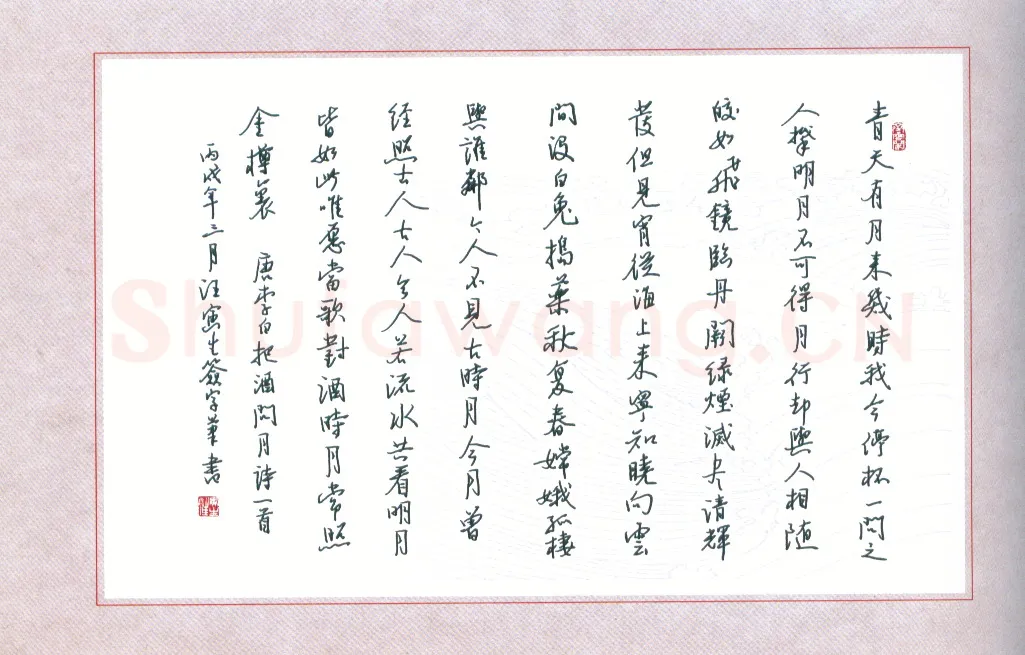 青天有月来幾時我今停杯一問之
人攀明月不可得月行却與人相随
皎如飛鏡臨丹闕绿煙滅尽清輝
發但見宵從海上来寧知曉向雲
間没白兔搗藥秋复春嫦娥孤棲
與誰鄰今人不見古時月今月曾
经照古人古人今人若流水共看明月
皆如此唯愿當歌對酒時月常照
金樽裏 唐李白把酒問月诗一首
丙戌年三月汪寅生簽字筆書
Shufawang.CN